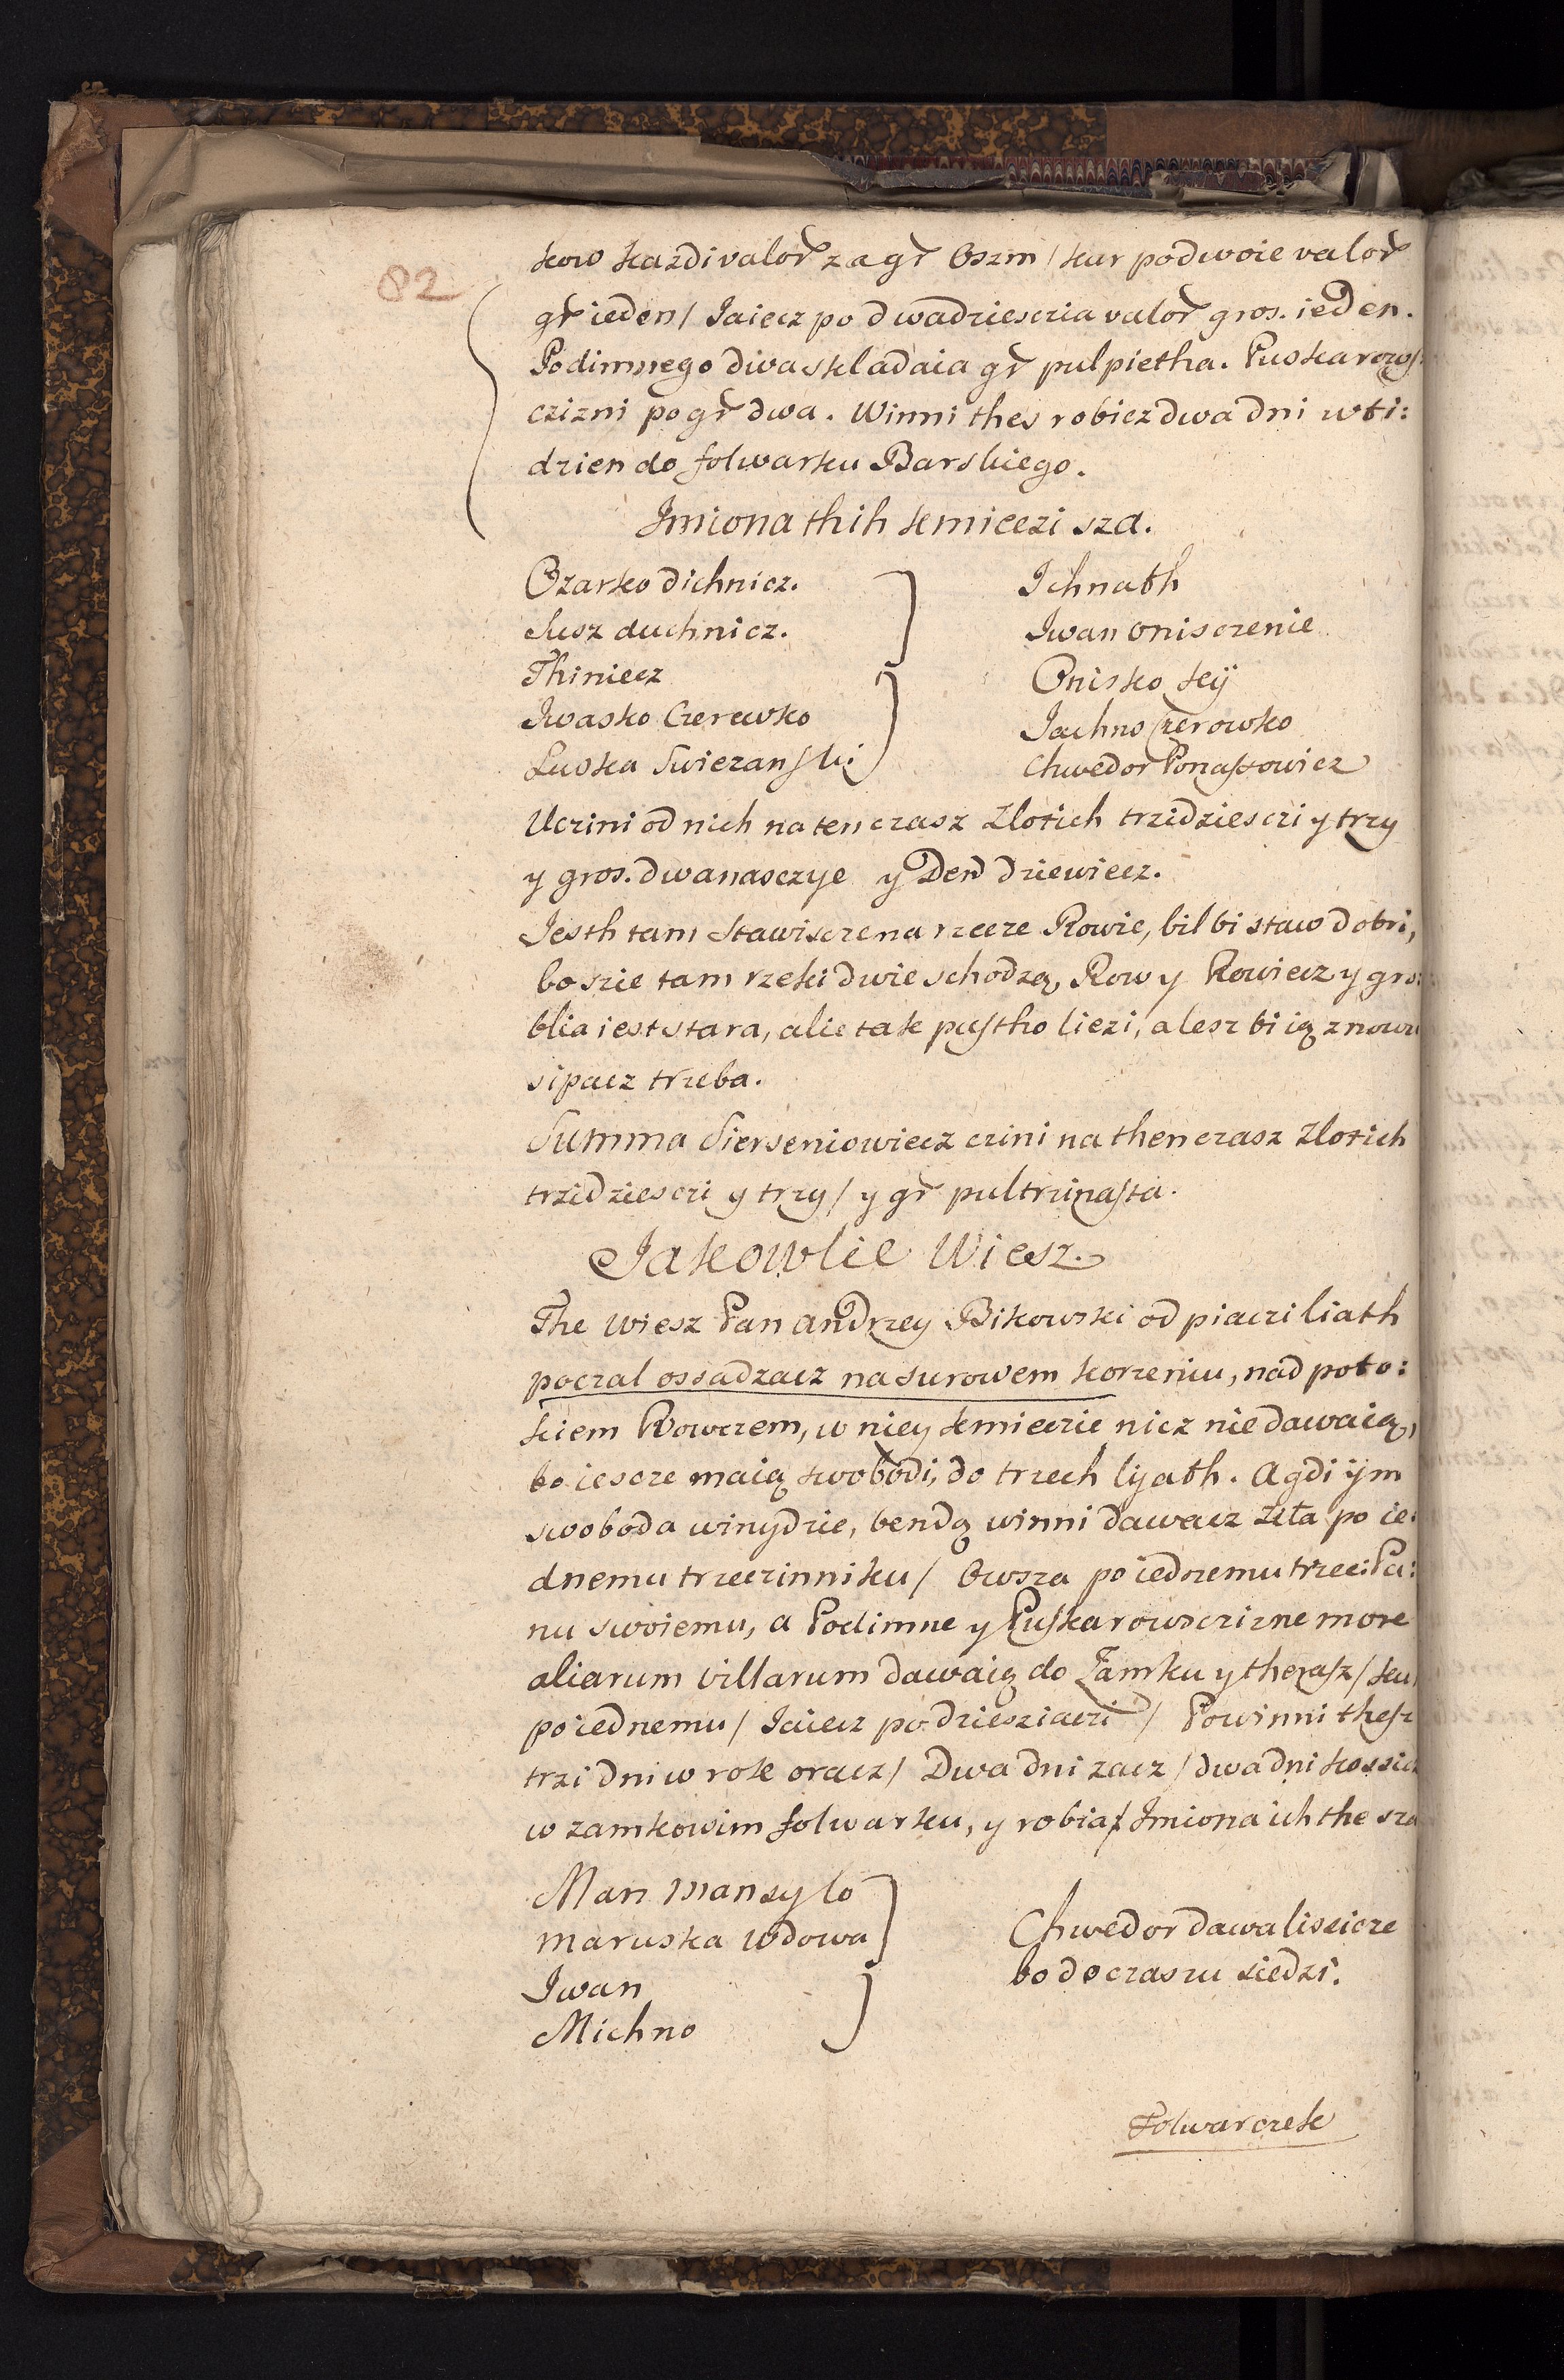 82
kow kazdi valor za gr Oszm / kur podwoie valor
gr ieden / Jaiecz po dwadziesczia valor gros. ieden.
Podimnego dwa skladaia gr pulpietha. Puskarows-
czizni po gr dwa. Winni thes robicz dwa dni w ti:
dzien do folwarku Barskiego.
Imiona thih kmieczi sza.
Ozarko dichnicz.
Susz duchnicz.
Thiniecz
Iwasko Czerewko
Luska Swiezanski
Ichnath
Iwan Onisczenie
Onisko keÿ
Jachno Czerowko
Chwedor Ponaskowicz
Uczini od nich na ten czasz Zlotich trzidziesczi y trzy
y gros. dwanasczye y Den dziewiecz.
Jesth tam Stawiscze na rzece Rowie, bil bi staw dobri,
bo szie tam rzeki dwie schodzą, Row y Rowiecz y gro:
blia iest stara, alie tak pustho liezi, a lesz bi ią znowu
sipacz trzeba.
Summa Sierseniowiecz czini na then czasz Zlotich
trzidziesczi y trzy / y gr pultrzinasta.
Jakowlie Wiesz.
The Wiesz Pan Andrzey Bikowski od piaczi liath
poczal ossadzacz na surowem korzeniu, nad poto:
kiem Rowczem, w niey kmieczie nicz nie dawaią,
bo iescze maią swobodi, do trzech lyath. A gdi ÿm
swoboda winydzie, bendą winni dawacz Zita po ie:
dnemu trzeczinniku / Owsza po iednemu trzec: Pa:
nu swoiemu, a Podimne y Puskarowsczizne more
aliarum villarum dawaią do Zamku y therasz / kur
po iednemu / Jaiecz po dziesziaczi / Powinni thesz
trzi dni w rok oracz / Dwa dni zacz / dwa dni kossicz
w zamkowim folwarku, y robia / Imiona ich the sza
Man Mansylo
Maruska Wdowa
Iwan
Michno
Chwedor dawaliscicze
bo do czaszu siedzi.
Folwarczek